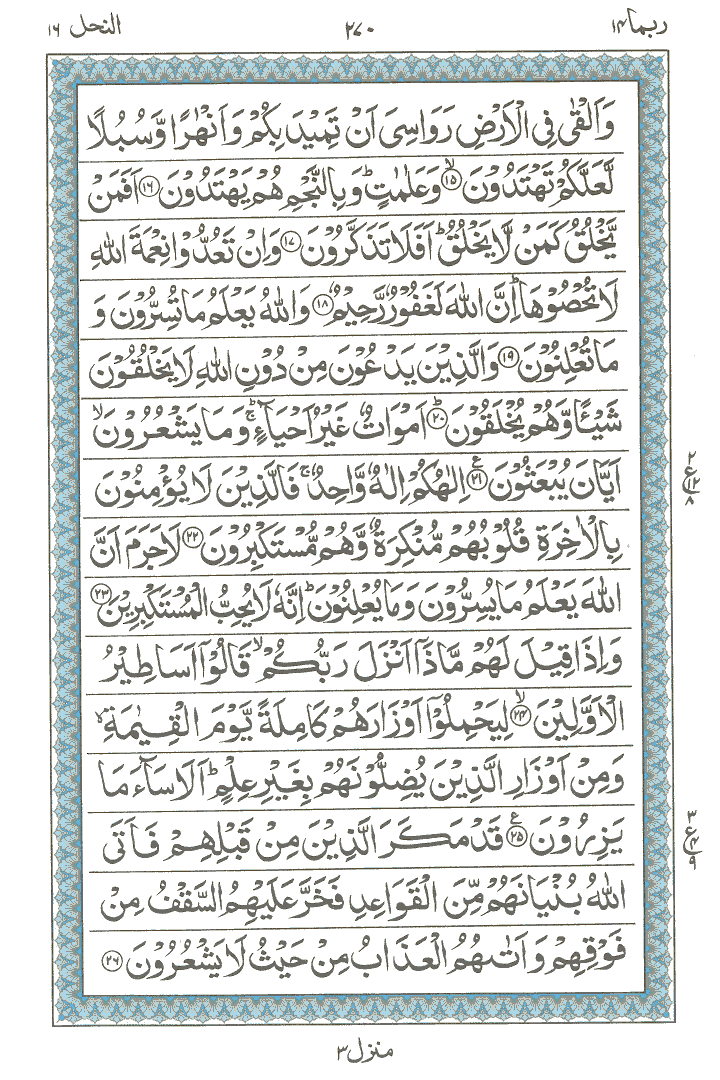 ربما ١٤
٢٧٠
النحل ١٦
وَاَلْقٰى فِى الْاَرْضِ رَوَاسِىَ اَنْ تَمِيْدَ بِكُمْ وَاَنْهٰرًا وَّسُبُلًا
لَّعَلَّكُمْ تَهْتَدُوْنَ ۙ﴿١٥﴾ وَعَلٰمٰتٍ ؕ وَبِالنَّجْمِ هُمْ يَهْتَدُوْنَ ﴿١٦﴾ اَفَمَنْ
يَّخْلُقُ كَمَنْ لَّا يَخْلُقُ ؕ اَفَلَا تَذَكَّرُوْنَ ﴿١٧﴾ وَاِنْ تَعُدُّوْا نِعْمَةَ اللّٰهِ
لَا تُحْصُوْهَا ؕ اِنَّ اللّٰهَ لَغَفُوْرٌ رَّحِيْمٌ ﴿١٨﴾ وَاللّٰهُ يَعْلَمُ مَا تُسِرُّوْنَ وَ
مَا تُعْلِنُوْنَ ﴿١٩﴾ وَالَّذِيْنَ يَدْعُوْنَ مِنْ دُوْنِ اللّٰهِ لَا يَخْلُقُوْنَ
شَيْـًٔا وَّهُمْ يُخْلَقُوْنَ ؕ﴿٢٠﴾ اَمْوَاتٌ غَيْرُ اَحْيَآءٍ ۚ وَمَا يَشْعُرُوْنَ ۙ
اَيَّانَ يُبْعَثُوْنَ ﴿٢١﴾ اِلٰهُكُمْ اِلٰهٌ وَّاحِدٌ ۚ فَالَّذِيْنَ لَا يُؤْمِنُوْنَ
بِالْاٰخِرَةِ قُلُوْبُهُمْ مُّنْكِرَةٌ وَّهُمْ مُّسْتَكْبِرُوْنَ ﴿٢٢﴾ لَا جَرَمَ اَنَّ
اللّٰهَ يَعْلَمُ مَا يُسِرُّوْنَ وَمَا يُعْلِنُوْنَ ؕ اِنَّهٗ لَا يُحِبُّ الْمُسْتَكْبِرِيْنَ ﴿٢٣﴾
وَاِذَا قِيْلَ لَهُمْ مَّاذَاۤ اَنْزَلَ رَبُّكُمْ ۙ قَالُوْۤا اَسَاطِيْرُ
الْاَوَّلِيْنَ ۙ﴿٢٤﴾ لِيَحْمِلُوْۤا اَوْزَارَهُمْ كَامِلَةً يَّوْمَ الْقِيٰمَةِ ۙ
وَمِنْ اَوْزَارِ الَّذِيْنَ يُضِلُّوْنَهُمْ بِغَيْرِ عِلْمٍ ؕ اَلَا سَآءَ مَا
يَزِرُوْنَ ﴿٢٥﴾ قَدْ مَكَرَ الَّذِيْنَ مِنْ قَبْلِهِمْ فَاَتَى
اللّٰهُ بُنْيَانَهُمْ مِّنَ الْقَوَاعِدِ فَخَرَّ عَلَيْهِمُ السَّقْفُ مِنْ
فَوْقِهِمْ وَاَتٰىهُمُ الْعَذَابُ مِنْ حَيْثُ لَا يَشْعُرُوْنَ ﴿٢٦﴾
٢
ع ١٢
٨
٣
ع ٤
٩
منزل ٣